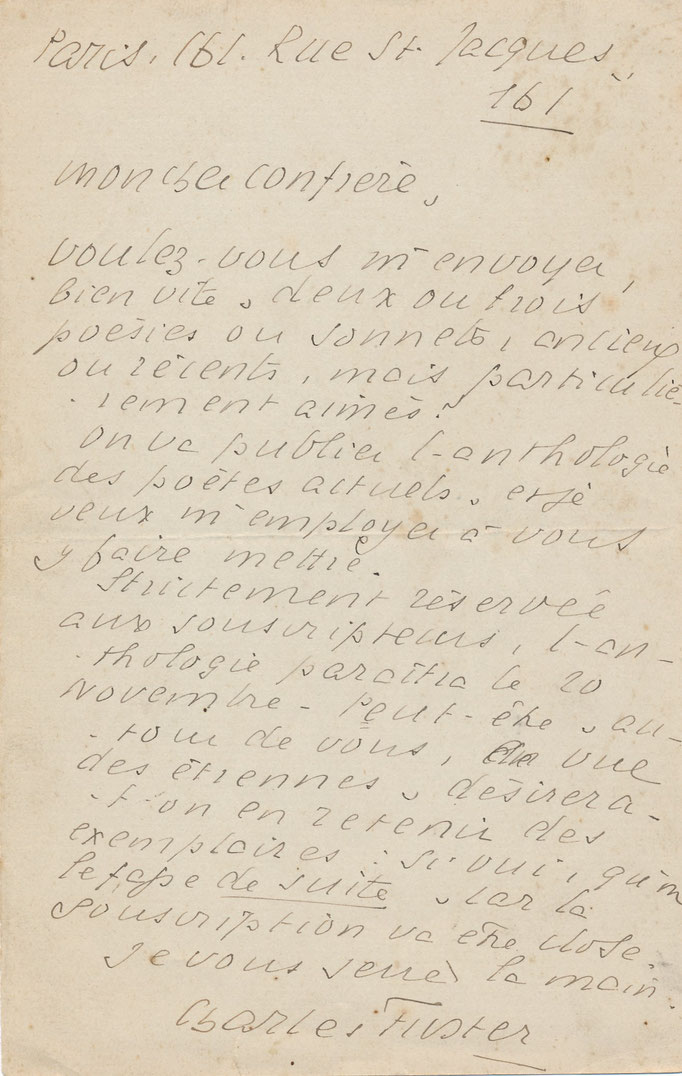 Paris. 161. Rue St. Jacques,
161
Mon cher confrère,
voulez-vous m'envoyer,
bien vite, deux ou trois
poésies ou sonnets, anciens
ou récents, mais particuliè-
-rement aimés?
On va publier l'anthologie
des poètes actuels, et je
veux m'employer à vous
y faire mettre.
Strictement réservée
aux souscripteurs, l'an-
-thologie paraîtra le 20
Novembre - Peut-être, au-
-tour de vous, en vue
des étrennes, désirera-
-t-on en retenir des
exemplaires : si oui, qu'on
le fasse de suite, car la
souscription va être close.
Je vous serre la main.
Charles Fuster